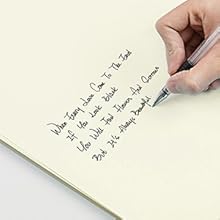 When Every Love Come To The End
If You Look Black
You Will Find Flowers And Colours
But It's Always Beautiful